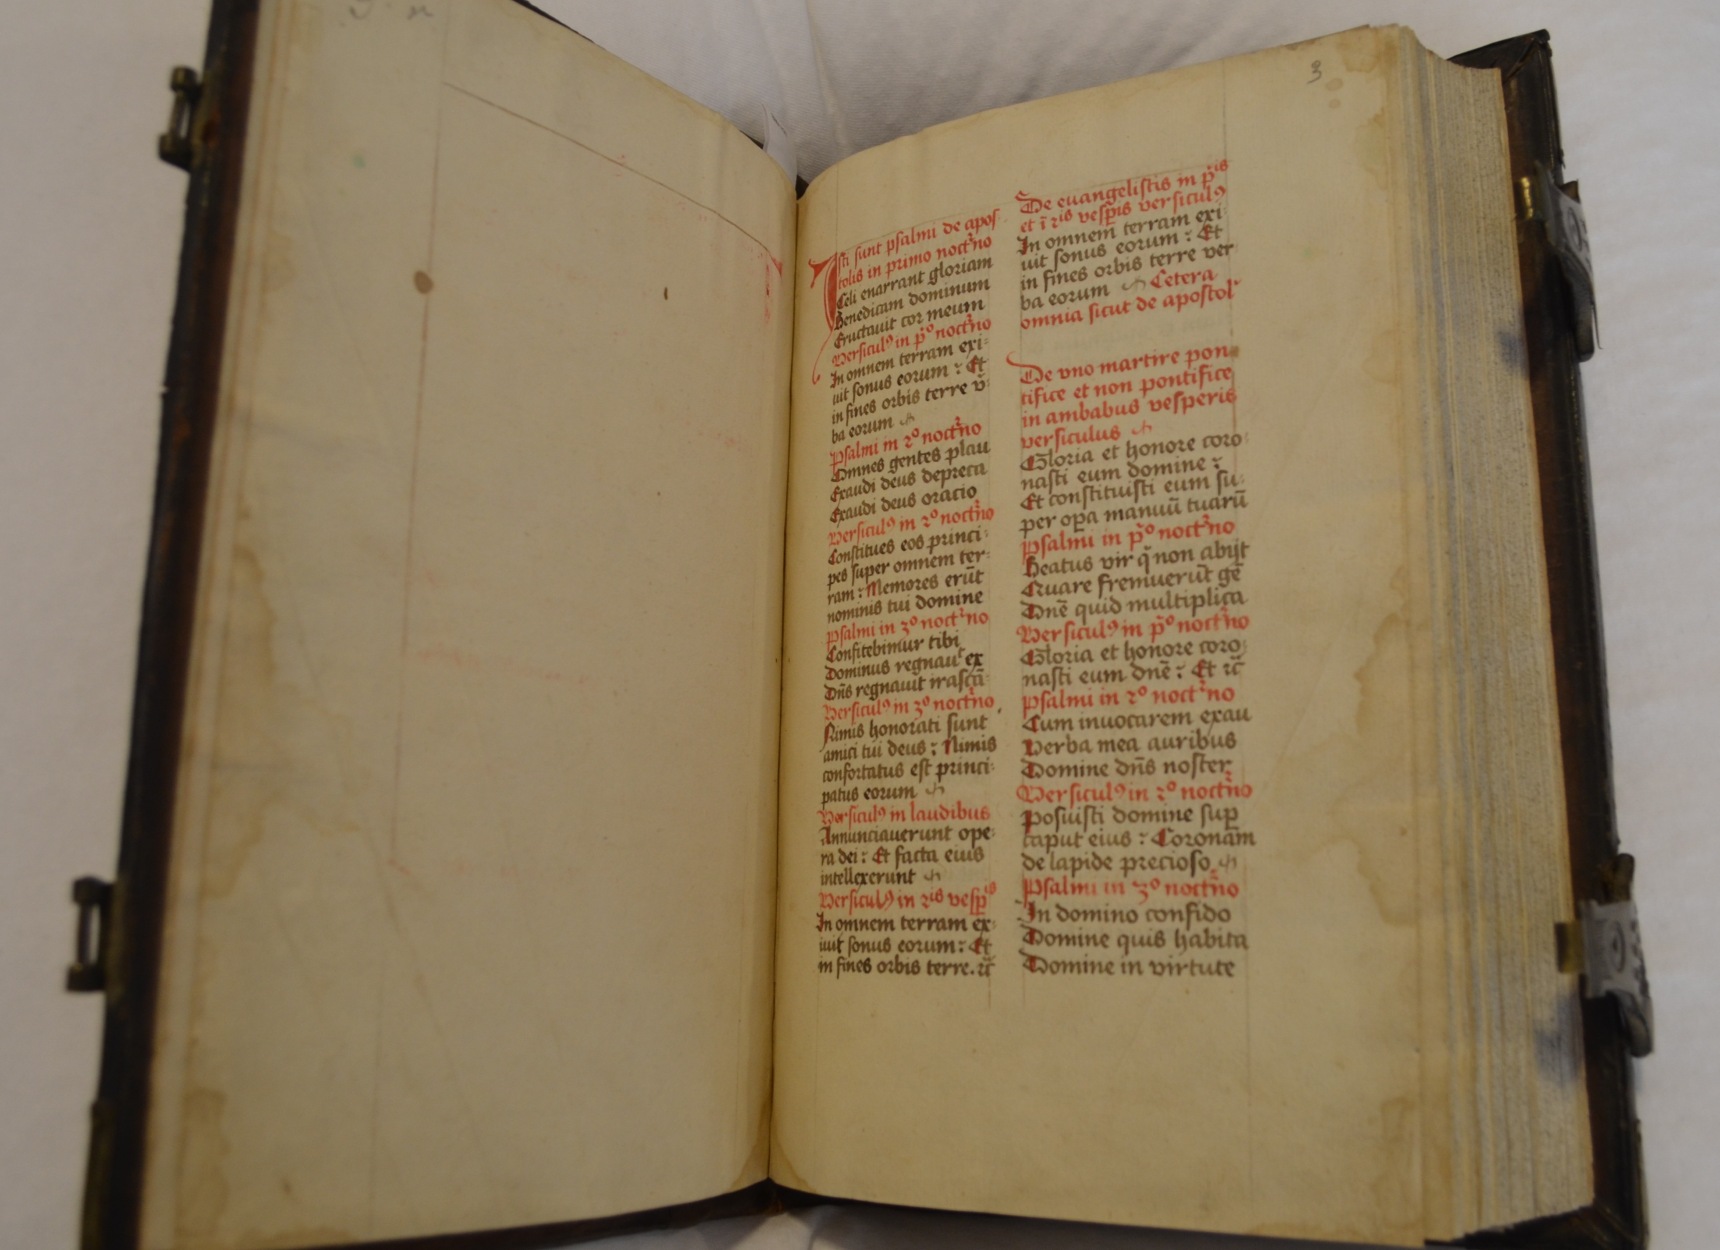 3
Isti sunt psalmi de apos
tolis in primo noctᷣno
Celi enarrant gloriam
Benedicam dominum
Eructauit cor meum
Versiculꝰ in pͦ noctᷣno
In omnem terram exi-
uit sonus eorum : Et
in fines orbis terre v̄
ba eorum
Psalmi in 2ͦ noctᷣno
Omnes gentes plau
Exaudi deus depreca
Exaudi deus oracio
Versiculꝰ in 2ͦ noctᷣno
Constitues eos princi-
pes super omnem ter-
ram : Memores erūt
nominis tui domine
Psalmi in 3ͦ noctᷣno
Confitebimur tibi
Dominus regnauᵗ ex
Dn̄s regnauit irascā-
Versiculꝰ in 3ͦ noctᷣno
Nimis honorati sunt
amici tui deus : Nimis
confortatus est princi-
patus eorum
Versiculꝰ in laudibus
Annunciauerunt ope-
ra dei : Et facta eius
intellexerunt
Versiculꝰ in 2ⁱˢ vesꝑⁱˢ
In omnem terram ex-
iuit sonus eorum : Et
in fines orbis terre. ꝛc̄
De euangelistis in pⁱˢ
et ī 2ⁱˢ vesꝑis versiculꝰ
In omnem terram exi-
uit sonus eorum : Et
in fines orbis terre ver
ba eorum Cetera
omnia sicut de apostol'
De vno martire pon-
tifice et non pontifice
in ambabus vesperis
versiculus
Gloria et honore coro-
nasti eum domine :
Et constituisti eum su-
per oꝑa manuū tuarū
Psalmi in pͦ noctᷣno
Beatus vir q̄ non abijt
Quare fremuerūt gē
Dn̄e quid multiplica
Versiculꝰ in pͦ noctᷣno
Gloria et honore coro-
nasti eum dn̄e : Et ꝛc̄
Psalmi in 2ͦ noctᷣno
Cum inuocarem exau
Verba mea auribus
Domine dn̄s noster
Versiculꝰ in 2ͦ noctᷣno
Posuisti domine suꝑ
caput eius : Coronam
de lapide precioso
Psalmi in 3ͦ noctᷣno
In domino confido
Domine quis habita
Domine in virtute